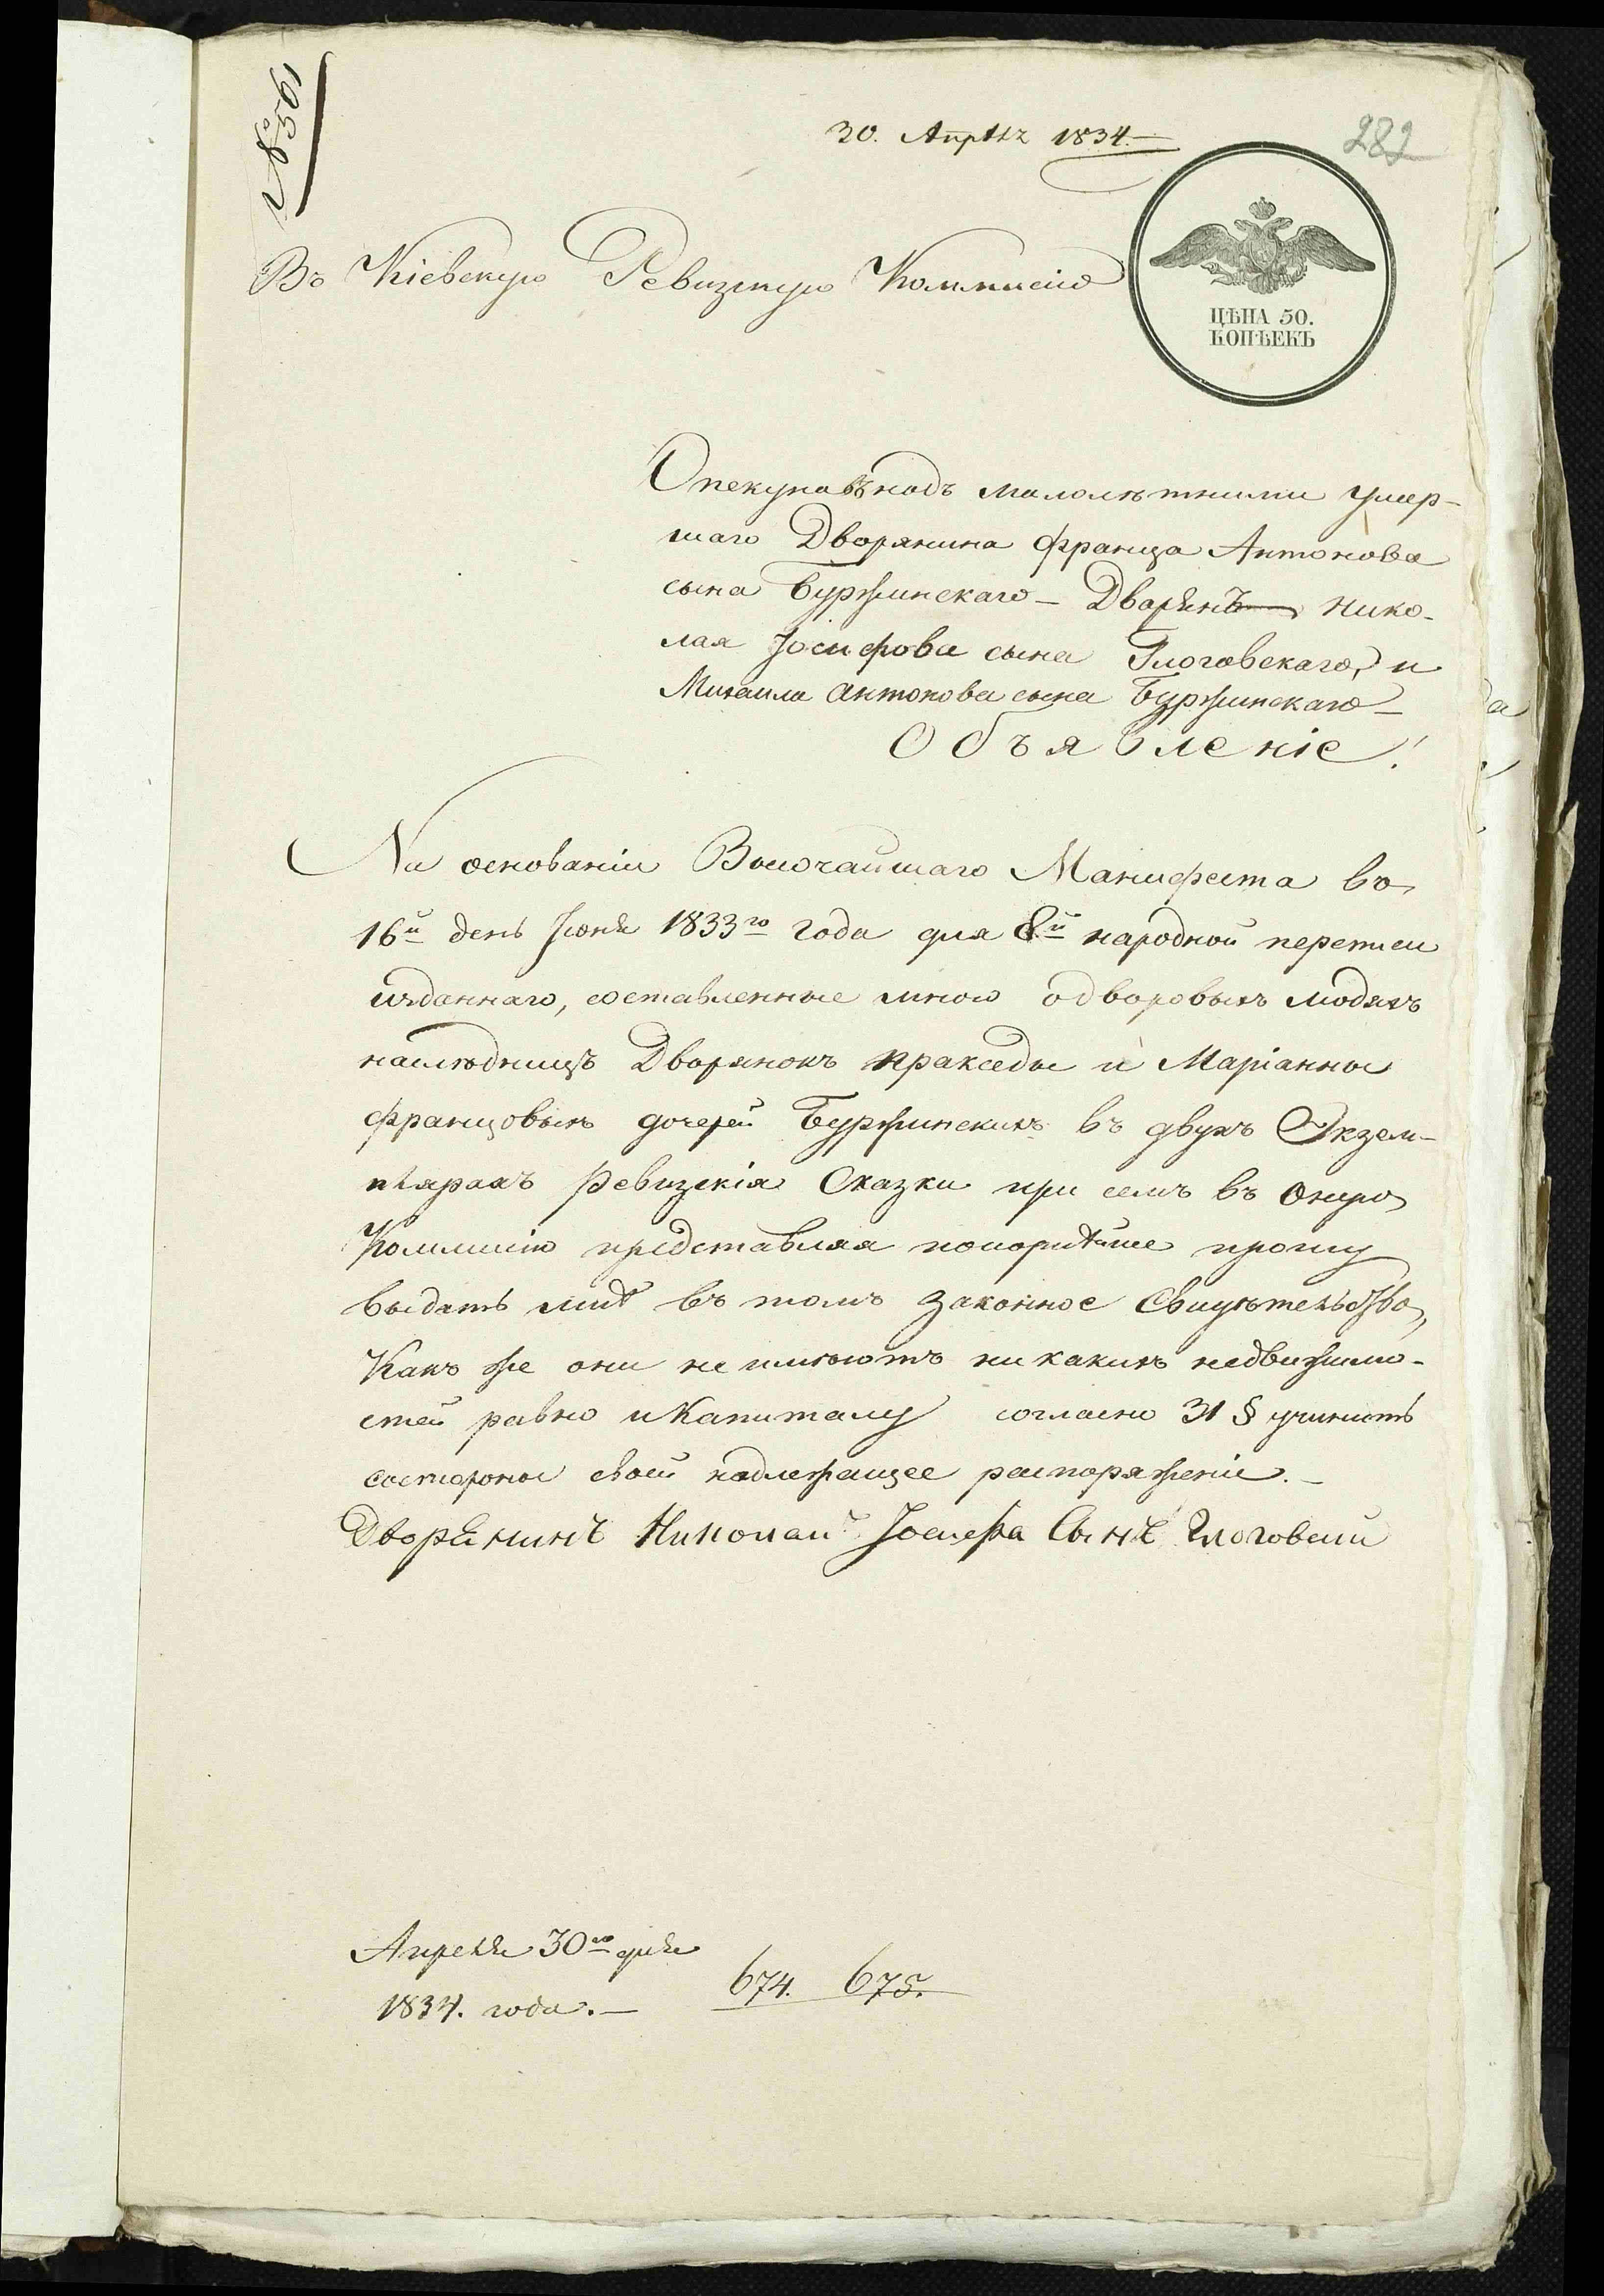 № 8561
30. Апрѣля 1834.
282
Въ Кіевскую Ревизскую Коммисію
ЦѢНА 50.
КОПѢЕКЪ
Опекуновъ надъ малолѣтними умер-
шаго Дворянина Франца Антонова
сына Буржинскаго - Дворянъ Нико-
лая Іосифова сына Глоговскаго, и
Михаила Антонова сына Буржинскаго -
Объявленіе!
На основаніи Высочайшаго Манифеста въ
16й день Іюня 1833го года для 8й народной переписи
изданнаго, составленные мною одворовыхъ людяхъ
наслѣдницъ Дворянокъ Пракседы и Маріанны
Францовыхъ дочерей Буржинскихъ въ двухъ Экзем-
плярахъ Ревизскія Сказки при семъ въ оную
Коммисію представляя покорнѣйше прошу
выдать мнѣ въ томъ законное Свидѣтельство,
Какъ же они не имѣютъ никакихъ недвижимо-
стей равно и Капиталу согласно 31 § учинить
состороны своей надлежащее распоряженіе. -
Дворянинъ Николай Іосифа Сынъ Глоговский
Апреля 30го дня
1834. года. -
674. 675.